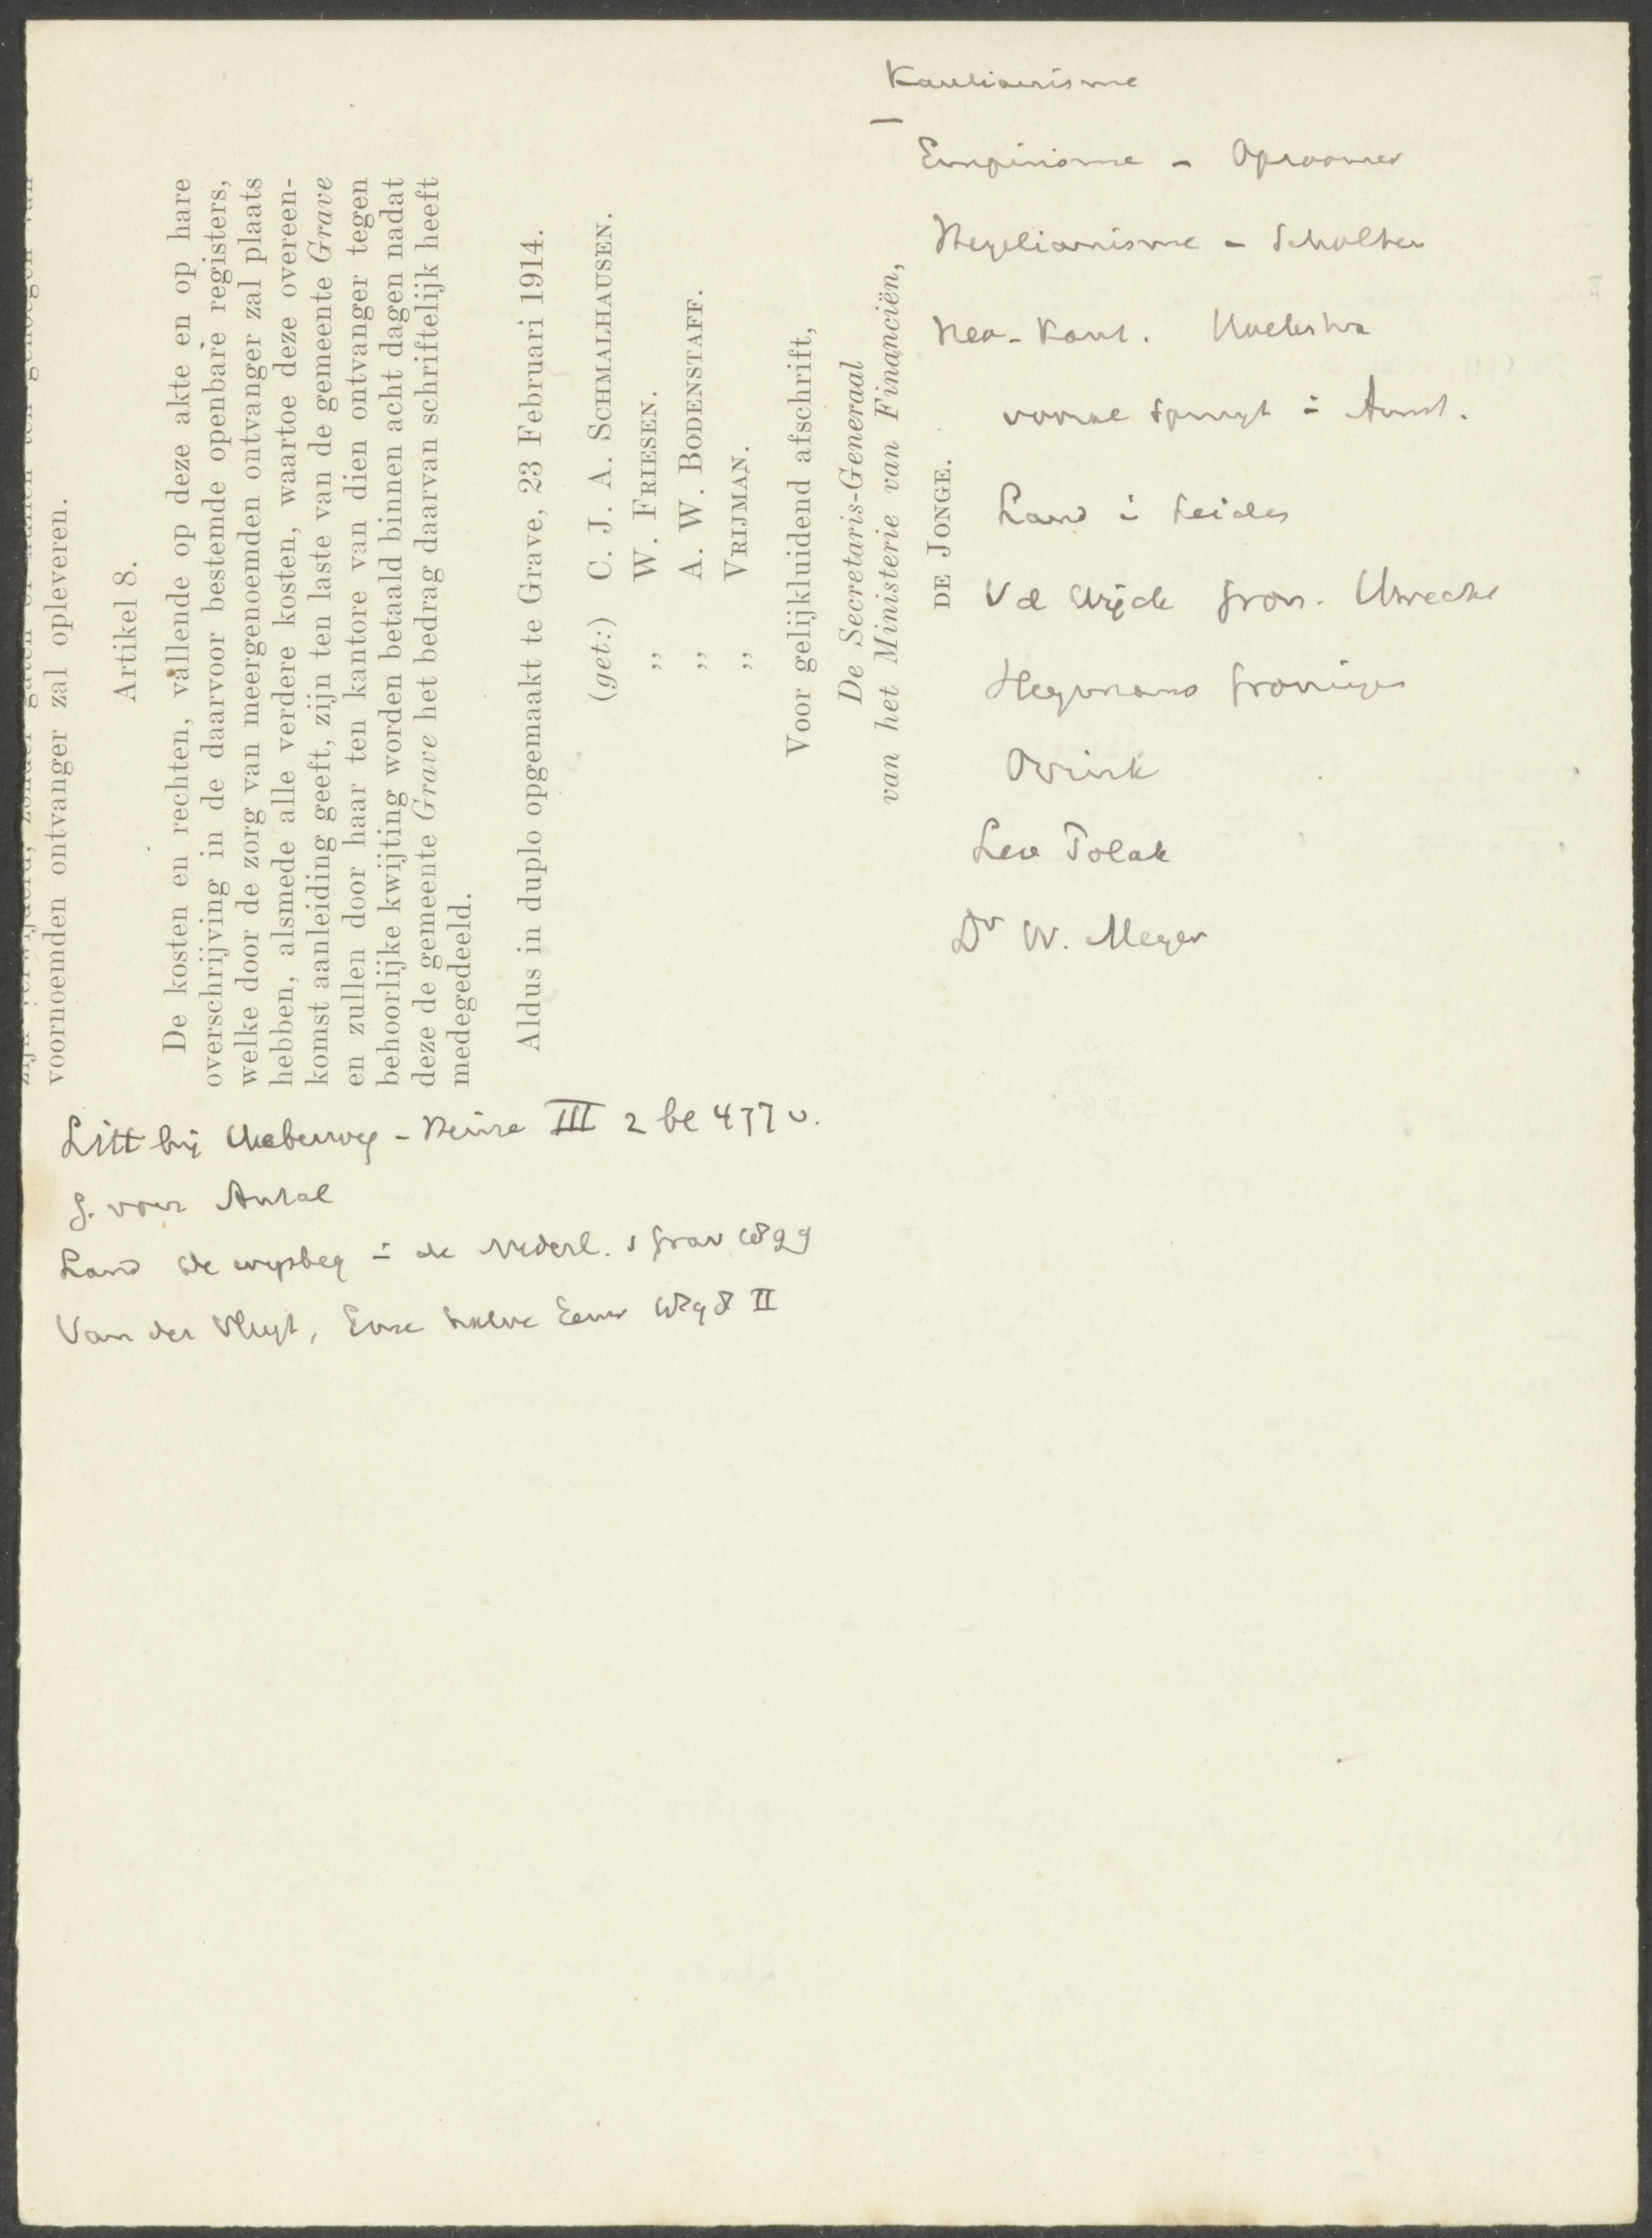 voornoemden ontvanger zal opleveren.
Artikel 8.
De kosten en rechten, vallende op deze akte en op hare
overschrijving in de daarvoor bestemde openbare registers,
welke door de zorg van meergenoemden ontvanger zal plaats
hebben, alsmede alle verdere kosten, waartoe deze overeen-
komst aanleiding geeft, zijn ten laste van de gemeente Grave
en zullen door haar ten kantore van dien ontvanger tegen
behoorlijke kwijting worden betaald binnen acht dagen nadat
deze de gemeente Grave het bedrag daarvan schriftelijk heeft
medegedeeld.
Aldus in duplo opgemaakt te Grave, 23 Februari 1914.
(get:) C. J. A. SCHMALHAUSEN.
,, W. FRIESEN.
,, A. W. BODENSTAFF.
,, VRIJMAN.
Voor gelijkluidend afschrift,
De Secretaris-Generaal
van het Ministerie van Financiën,
DE JONGE.
Kantianisme
Empirisme - Opzoomer
Hegelianisme - Scholten
Neo-Kant. Hoekstra
Spruyt i Amst.
Land i Leiden
Vd Wijck Gron. Utrecht
Heymans Groningen
Ovink
Leo Polak
Dr W. Meyer
Litt bij Ueberweg - Heinze III 2 be 477 v.
G. von Antal
Land de wijsbeg i de Nederl. s Grav 1899
Van der Vlugt, Eene halve Eeuw 1898 II